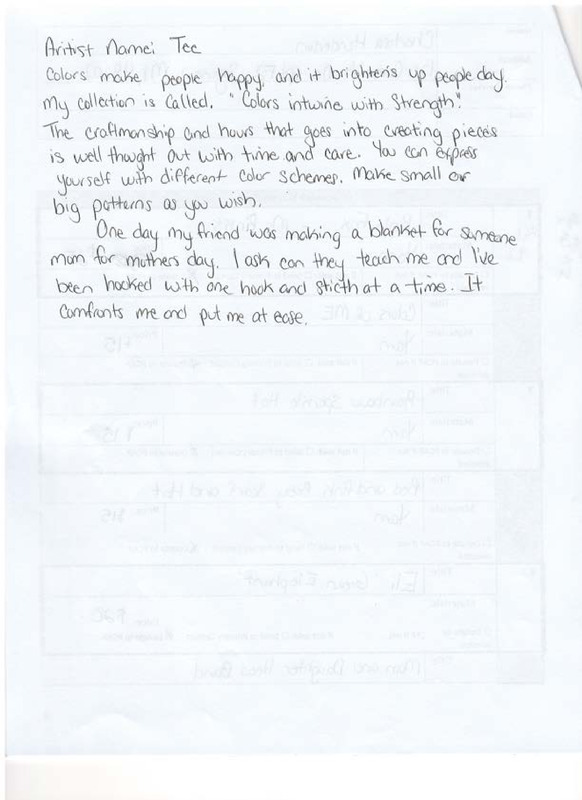 Aritist Name: Tee
Colors make people happy, and it brightens up people day.
My collection is called, "Colors intwine with Strength".
The craftmonship and hours that goes into creating pieces
is well thought out with time and care. You can express
yourself with different color schemes. Make small or
big patterns as you wish.
One day my friend was making a blanket for someone
mom for mothers day. I ask can they teach me and I've
been hooked with one hook and sticth at a time. It
comfronts me and put me at ease.